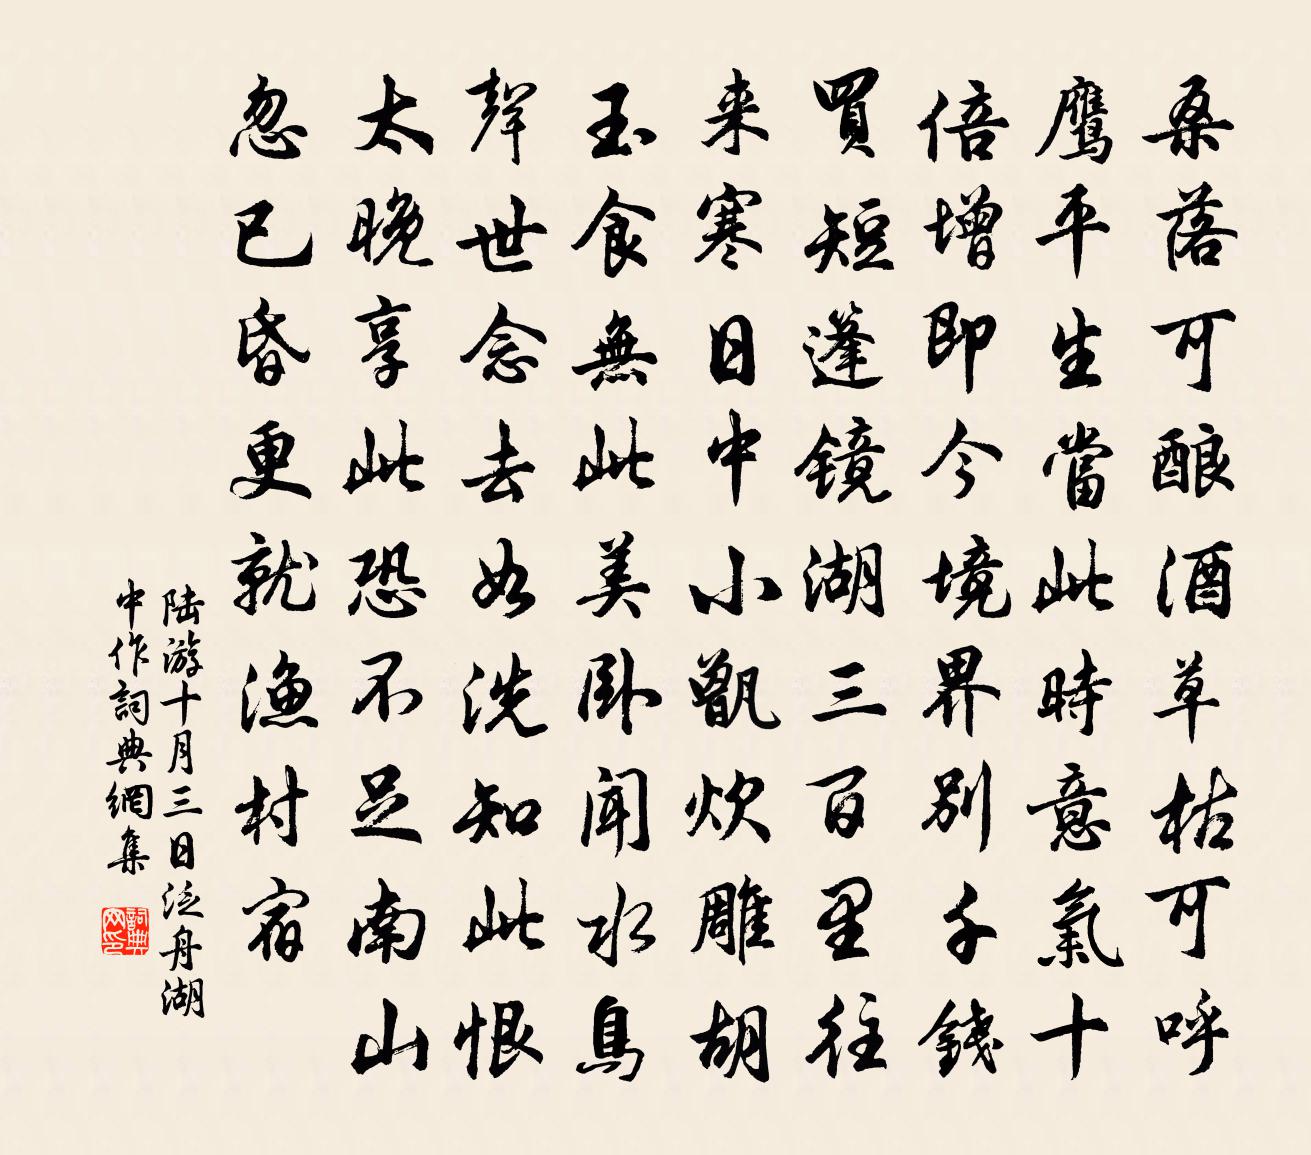 桑落可酿酒草枯可呼
鷹平生當此時意氣十
倍增即今境界别千錢
買短蓬鏡湖三百里往
来寒日中小甑炊雕胡
玉食無此美卧聞水鳥
聲世念去如洗知此恨
太晚享此恐不足南山
忽已昏更就漁村宿
陆游十月三日泛舟湖
中作詞典網集
詞典网印